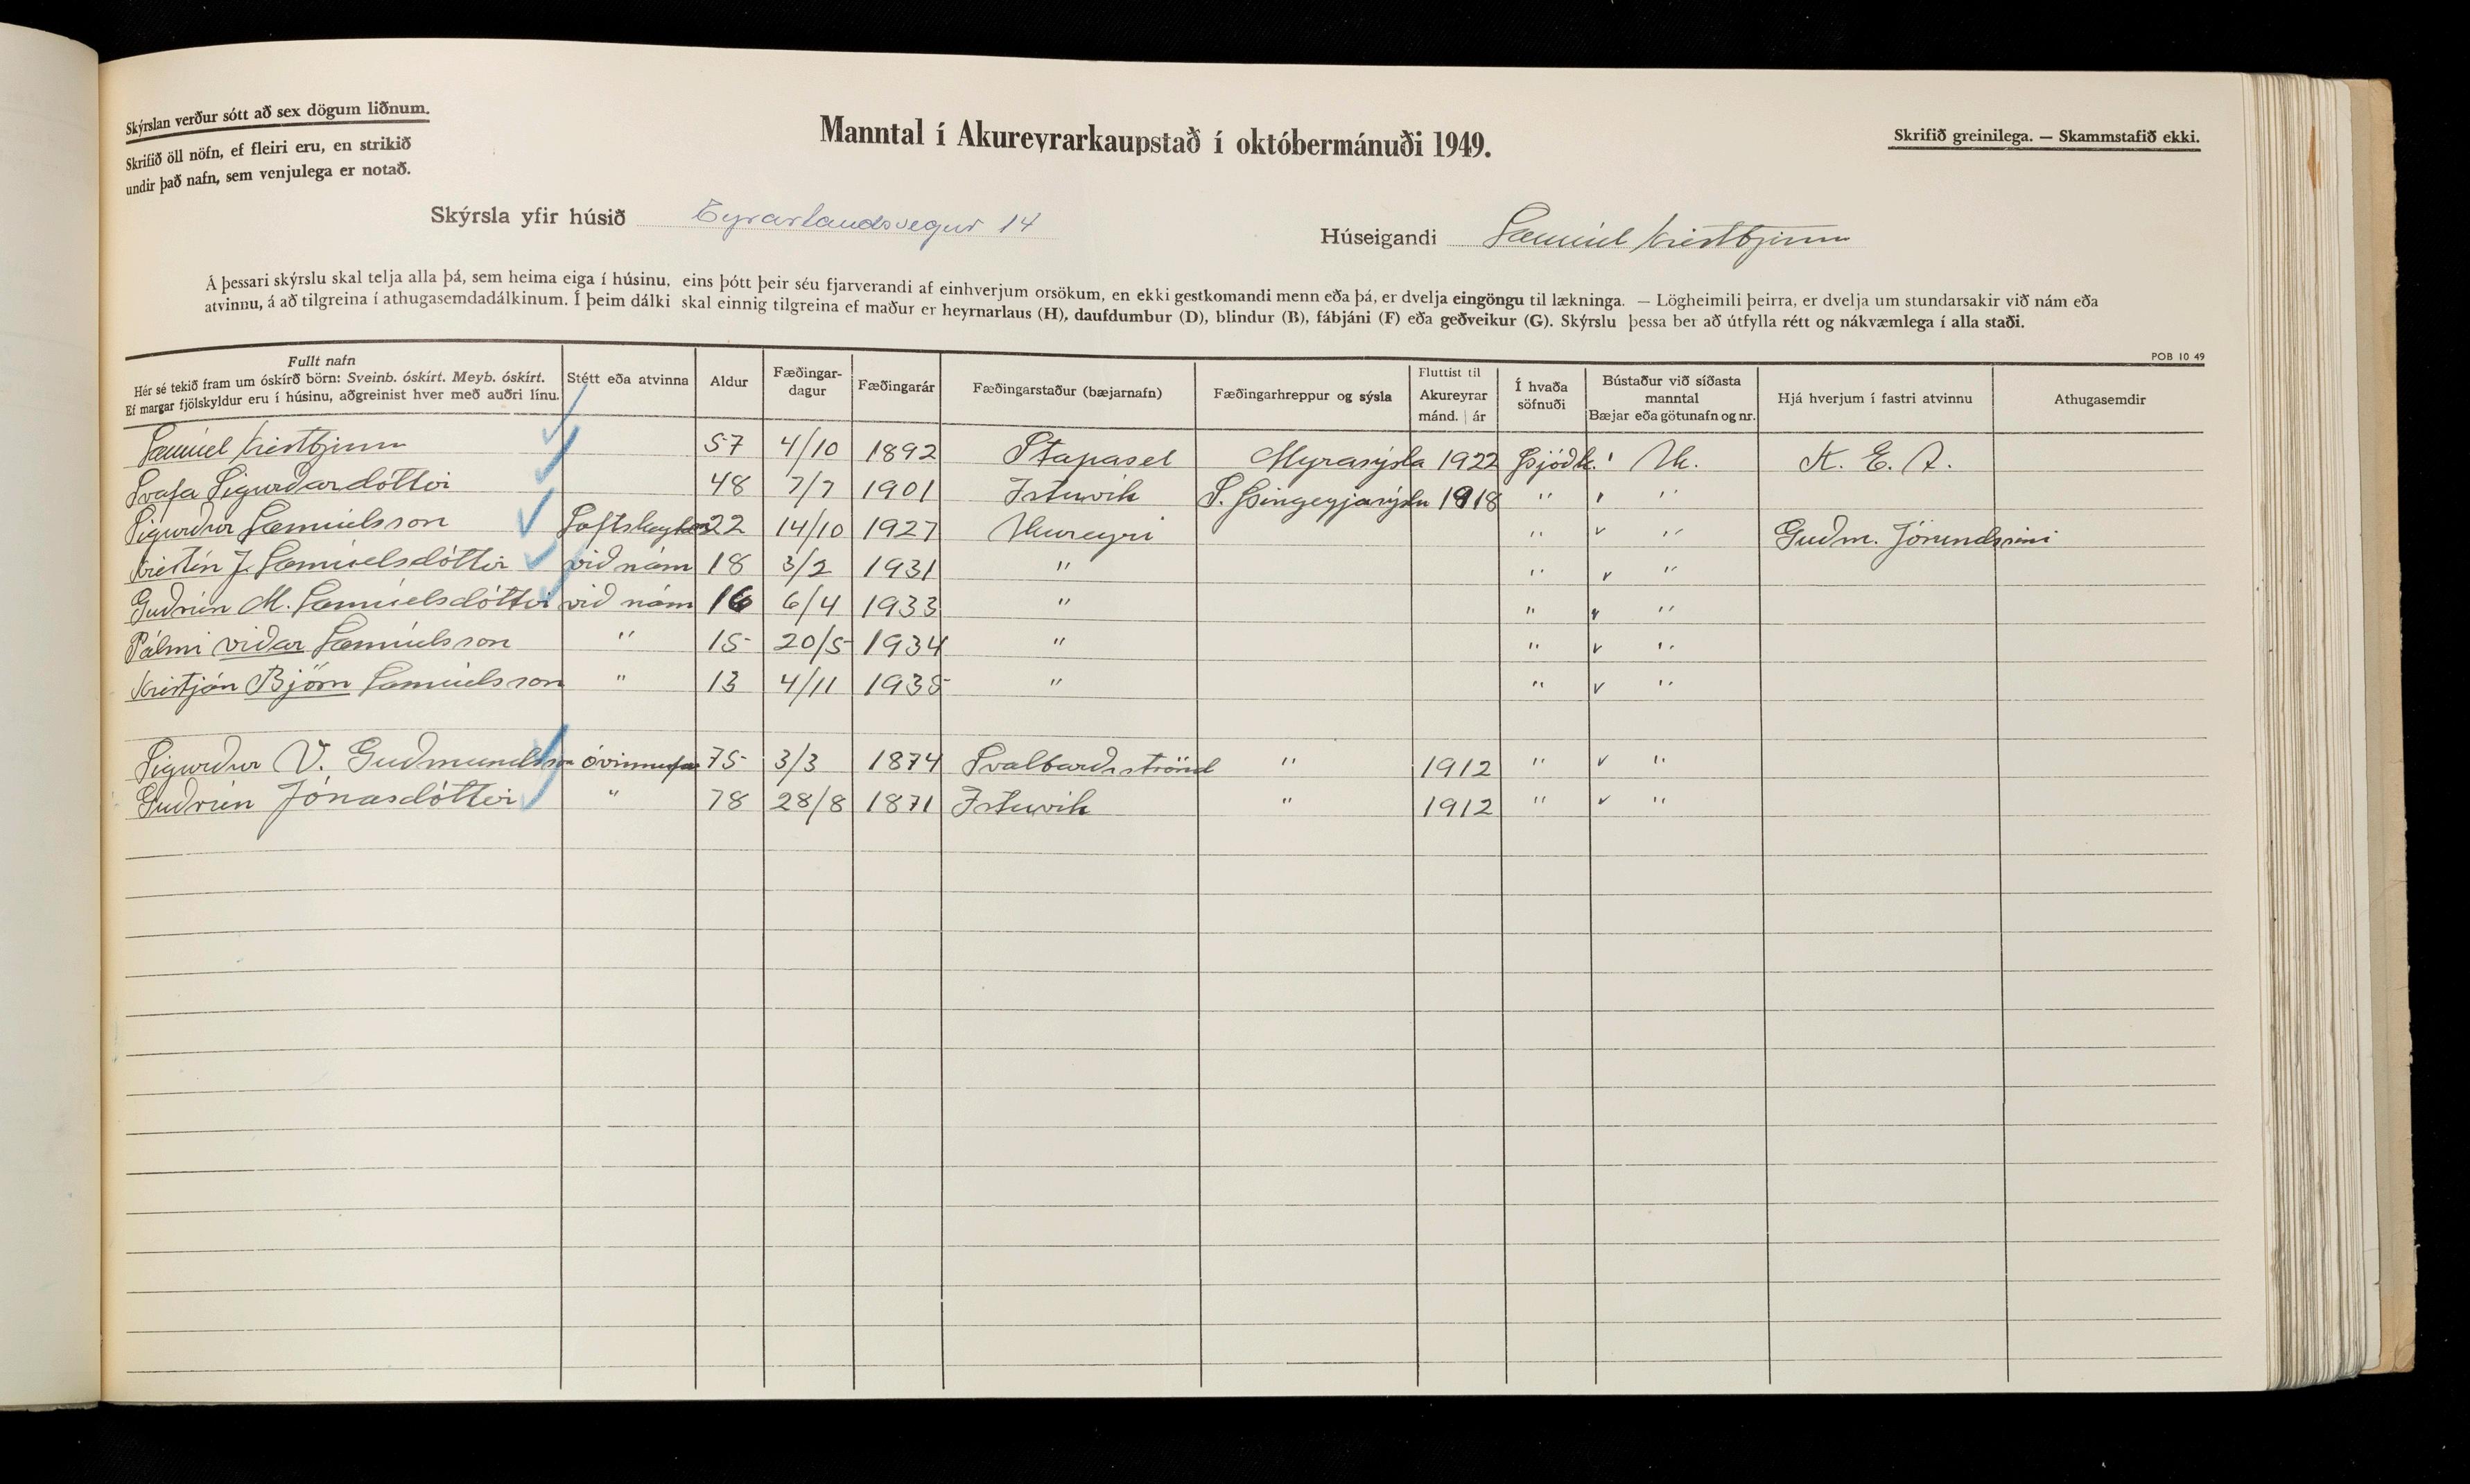 Skýrslan verður sótt að sex dögum liðnum.
Skrifið öll nöfn, ef fleiri eru, en strikið
undir það nafn, sem venjulega er notað.
Manntal í Akureyrarkaupstað í októbermánuði 1949.
Skrifið greinilega. — Skammstafið ekki.
Skýrsla yfir húsið Eyrarlandsvegur 14
Húseigandi Samúel Kristbjarnar
Á þessari skýrslu skal telja alla þá, sem heima eiga í húsinu, eins þótt þeir séu fjarverandi af einhverjum orsökum, en ekki gestkomandi menn eða þá, er dvelja eingöngu til lækninga. — Lögheimili þeirra, er dvelja um stundarsakir við nám eða
atvinnu, á að tilgreina í athugasemdadálkinum. Í þeim dálki skal einnig tilgreina ef maður er heyrnarlaus (H), daufdumbur (D), blindur (B), fábjáni (F) eða geðveikur (G). Skýrslu þessa ber að útfylla rétt og nákvæmlega í alla staði.
POB 10 49
Fullt nafn
Hér sé tekið fram um óskírð börn: Sveinb. óskírt. Meyb. óskírt.
Ef margar fjölskyldur eru í húsinu, aðgreinist hver með auðri línu.
Stétt eða atvinna
Aldur
Fæðingar-
dagur
Fæðingarár
Fæðingarstaður (bæjarnafn)
Fæðingarhreppur og sýsla
Fluttist til
Akureyrar
mánd. | ár
Í hvaða
söfnuði
Bústaður við síðasta
manntal
Bæjar eða götunafn og nr.
Hjá hverjum í fastri atvinnu
Athugasemdir
Samúel 57 4/10 1892 Stapasel Myrasýsla 1922 Þjóðk. K. E. A.
Svafa Sigurðardóttir 48 7/7 1901 Ystuvík S. Þingeyjasýslu 1918 " "
Sigurður Samúelsson Loftskeytam 22 14/10 1927 Akureyri " " Guðm. Jörundssini
Kristín J. Samúelsdóttir við nám 18 3/2 1931 " " "
Guðrún M. Samúelsdóttir við nám 16 6/4 1933 " " "
Pálmi viðar Samúelsson " 15 20/5 1934 " " "
Kristján Björn Samúelsson " 13 4/11 1935 " " "
Sigurður V. Guðmundsson óvinnufær 75 3/3 1874 Svalbarðsströnd " 1912 " "
Guðrún Jónasdóttir " 78 28/8 1871 Ystuvík " 1912 " "